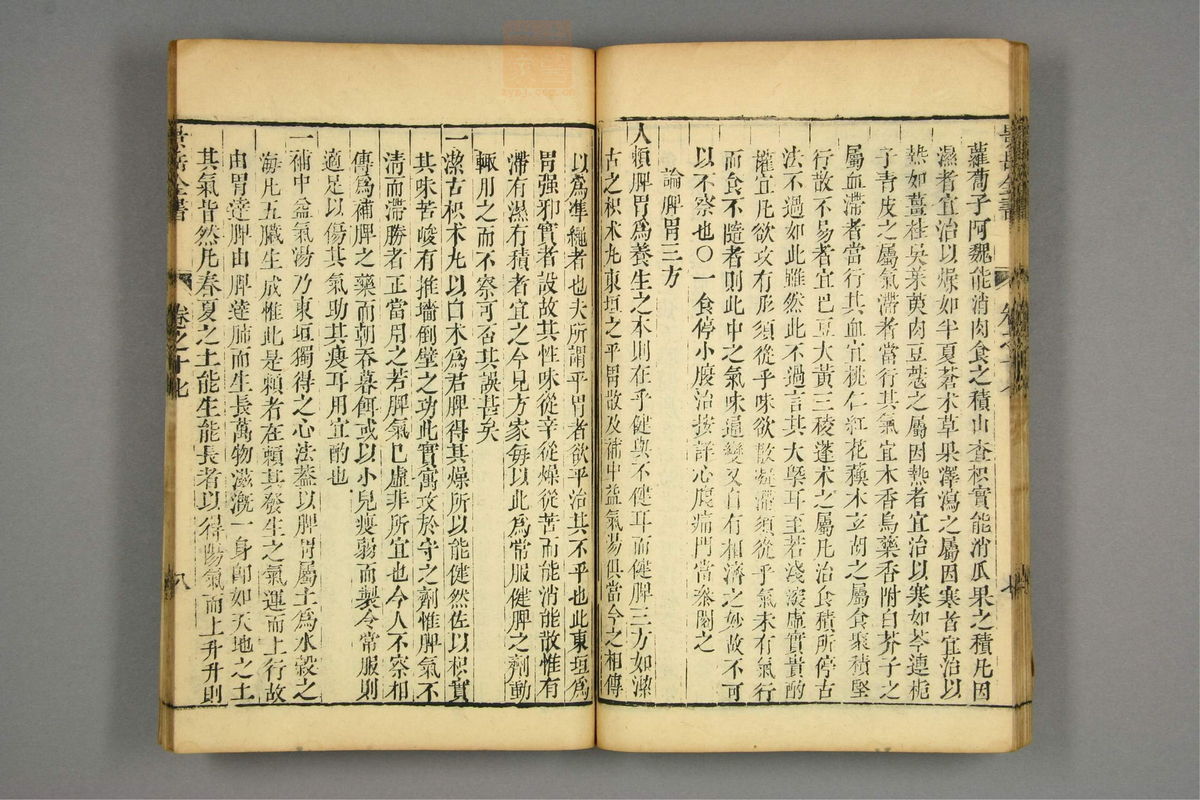 蘿蔔子阿魏能消肉食之積山查枳實能消瓜果之積凡因
濕者宜治以燥如半夏蒼术草果澤瀉之屬因寒者宜治以
熱如薑桂吳茱萸肉豆蔻之屬因熱者宜治以寒如芩連梔
子青皮之屬氣滯者當行其氣宜木香烏藥香附白芥子之
屬血滯者當行其血宜桃仁紅花蘇木玄胡之屬食聚積堅
行散不易者宜巴豆大黃三稜蓬术之屬凡治食積所停古
法不過如此雖然此不過言其大槩耳至若淺深虛實貴酌
權宜凡欲攻有形須從乎味欲散凝滯須從乎氣未有氣行
而食不隨者則此中之氣味通變又自有相濟之妙故不可
以不察也〇一食停小腹治按詳心腹痛門當參閱之
論脾胃三方
人類脾胃爲養生之本則在乎健與不健耳而健脾三方如潔
古之枳术丸東垣之平胃散及補中益氣湯俱當今之相傳
景岳全書
卷之十七
七
以爲準繩者也夫所謂平胃者欲平治其不平也此東垣爲
胃强邪實者設故其性味從辛從燥從苦而能消能散惟有
滯有濕有積者宜之今見方家每以此爲常服健脾之劑動
輒用之而不察可否其誤甚矣
一潔古枳术丸以白术爲君脾得其燥所以能健然佐以枳實
其味苦峻有推墻倒壁之功此實寓攻於守之劑惟脾氣不
清而滯勝者正當用之若脾氣已虛非所宜也今人不察相
傳爲補脾之藥而朝吞暮餌或以小兒瘦弱而製令常服則
適足以傷其氣助其瘦耳用宜酌也
一補中益氣湯乃東垣獨得之心法蓋以脾胃屬土爲水穀之
海凡五臟生成惟此是賴者在賴其發生之氣運而上行故
由胃達脾由脾達肺而生長萬物滋漑一身卽如天地之土
其氣皆然凡春夏之土能生能長者以得陽氣而上升升則
景岳全書
卷之十七
八